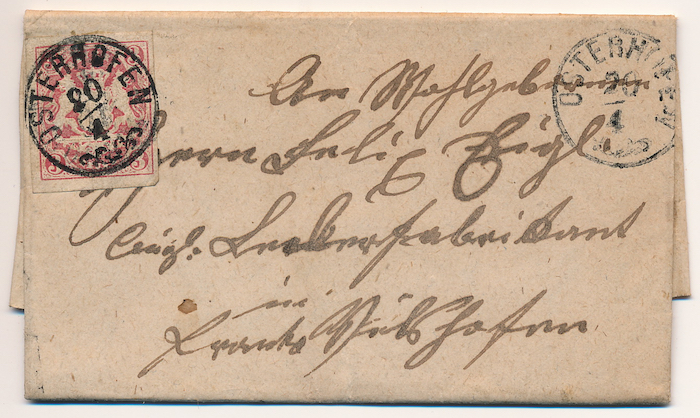 OSTERHOFEN
20
4
OSTERHOFEN
20
4
An Wohlgeboren
Herrn Felix Eigl
Lederfabrikant
in
Vilshofen